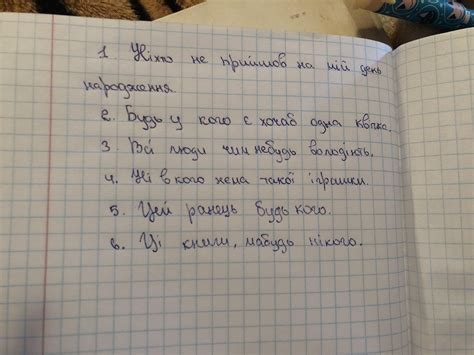 1. Ніхто не прийшов на мій день
народження.
2. Будь у кого є хочаб одна квітка.
3. Всі люди чим небудь володіють.
4. Ні в кого нема такої іграшки.
5. Цей ранець будь кого.
6. Ці книги, мабудь нікого.